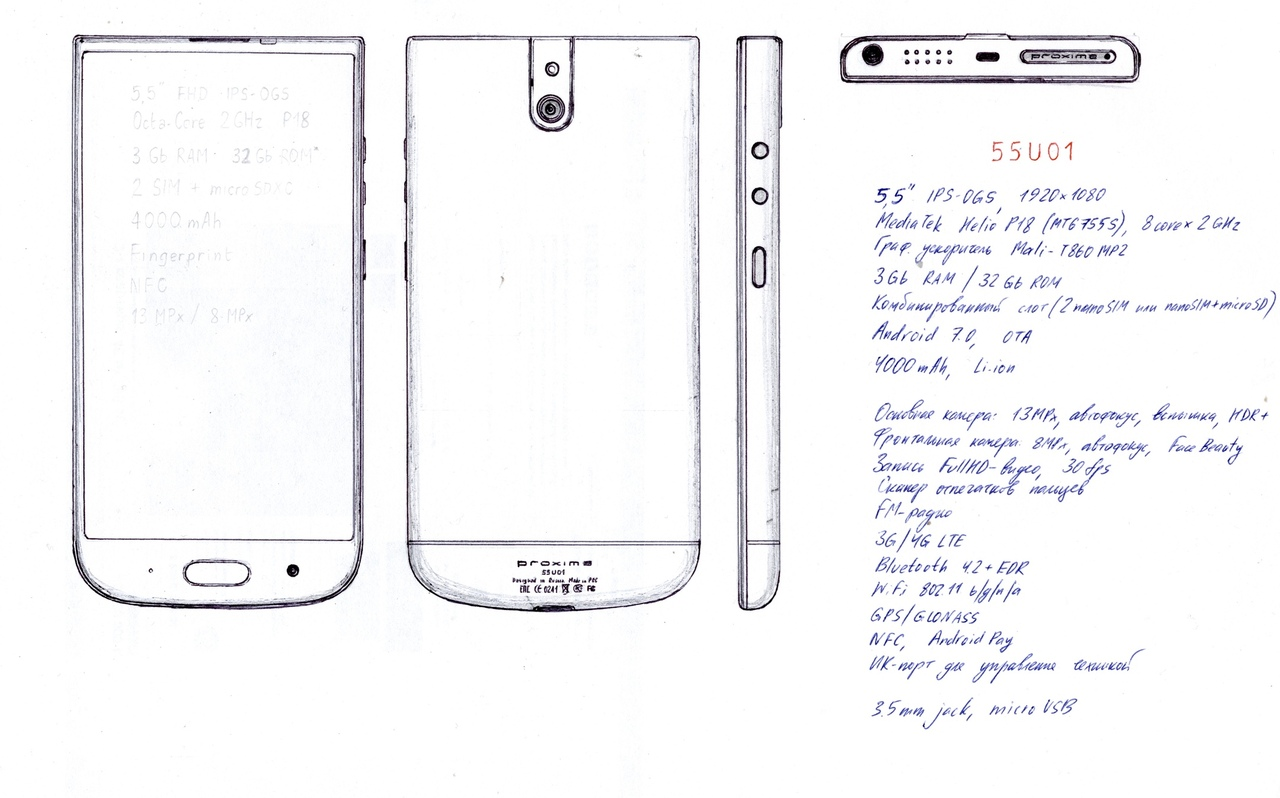 5,5" FHD IPS-OGS
Octa-Core 2 GHz P18
3 Gb RAM 32 Gb ROM*
2 SIM + microSDXC
4000 mAh
Fingerprint
NFC
13 MPx / 8 MPx
proxima
55U01
Designed in Russia. Made in PRC
EAC CE 0241 FC
proxima
55U01
5,5" IPS-OGS, 1920x1080
MediaTek Helio P18 (MT6755S), 8 core x 2 GHz
Граф. ускоритель Mali-T860 MP2
3 Gb RAM / 32 Gb ROM
Комбинированный слот (2 nanoSIM или nanoSIM+microSD)
Android 7.0, OTA
4000 mAh, Li-ion
Основная камера: 13 MPx, автофокус, вспышка, HDR+
Фронтальная камера: 8MPx, автофокус, Face Beauty
Запись FullHD-видео, 30 fps
Сканер отпечатков пальцев
FM-радио
3G/4G LTE
Bluetooth 4.2 + EDR
Wi-Fi 802.11 b/g/n/a
GPS/GLONASS
NFC, Android Pay
ИК-порт для управления техникой
3.5 mm jack, micro USB